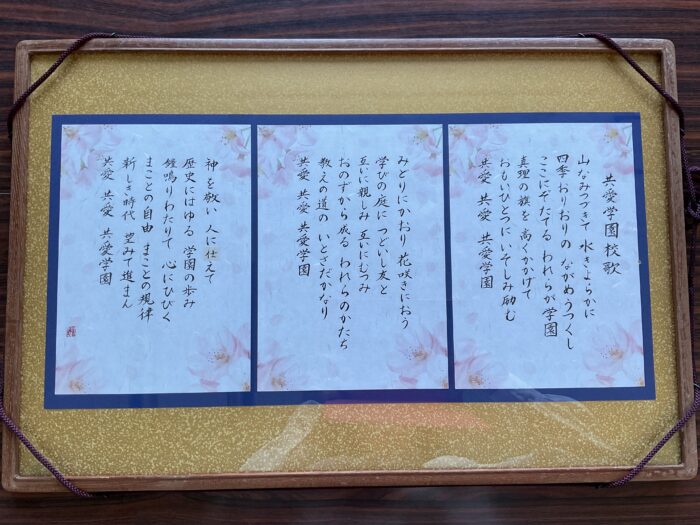 共愛学園校歌
山なみつづきて 水きよらかに
四季おりおりの ながめうつくし
ここにそだてる われらが学園
真理の旗を 高くかかげて
おもいひとつに いそしみ励む
共愛 共愛 共愛学園
みどりにかおり 花咲きにおう
学びの庭に つどいし友と
互いに親しみ 互いにむつみ
おのずから成る われらのかたち
教えの道の いとさだかなり
共愛 共愛 共愛学園
神を敬い 人に仕えて
歴史にはゆる 学園の歩み
鐘鳴りわたりて 心にひびく
まことの自由 まことの規律
新しき時代 望みて進まん
共愛 共愛 共愛学園